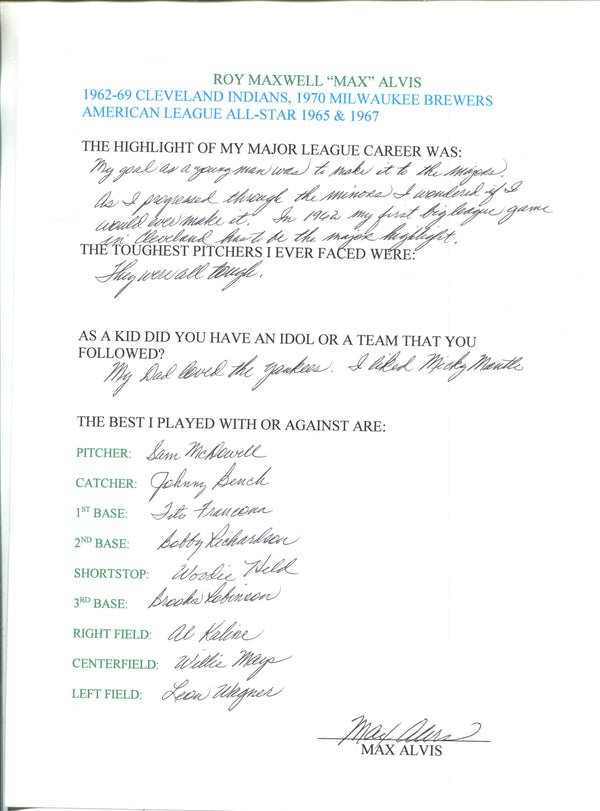 ROY MAXWELL “MAX” ALVIS
1962-69 CLEVELAND INDIANS, 1970 MILWAUKEE BREWERS
AMERICAN LEAGUE ALL-STAR 1965 & 1967
THE HIGHLIGHT OF MY MAJOR LEAGUE CAREER WAS:
My goal as a young man was to make it to the majors.
As I progressed through the minors I wondered if I
would ever make it. In 1962 my first big league game
in Cleveland has to be the major highlight.
THE TOUGHEST PITCHERS I EVER FACED WERE:
They were all tough.
AS A KID DID YOU HAVE AN IDOL OR A TEAM THAT YOU
FOLLOWED?
My Dad loved the Yankees. I liked Micky Mantle
THE BEST I PLAYED WITH OR AGAINST ARE:
PITCHER: Sam McDowell
CATCHER: Johnny Bench
1ST BASE: Tito Francona
2ND BASE: Bobby Richardson
SHORTSTOP: Woodie Held
3RD BASE: Brooks Robinson
RIGHT FIELD: Al Kaline
CENTERFIELD: Willie Mays
LEFT FIELD: Leon Wagner
Max Alvis
MAX ALVIS